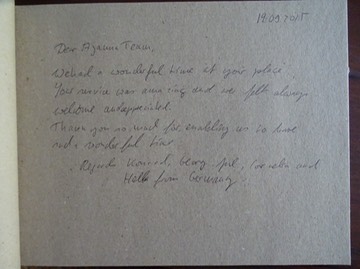 19.09.2015
Dear Team,
We had a wonderful time at your place.
Your service was amazing and we felt always
welcome and appreciated.
Thank you so much for enabling us to have
such a wonderful time.
Regards Konrad, Georg, and
from Germany